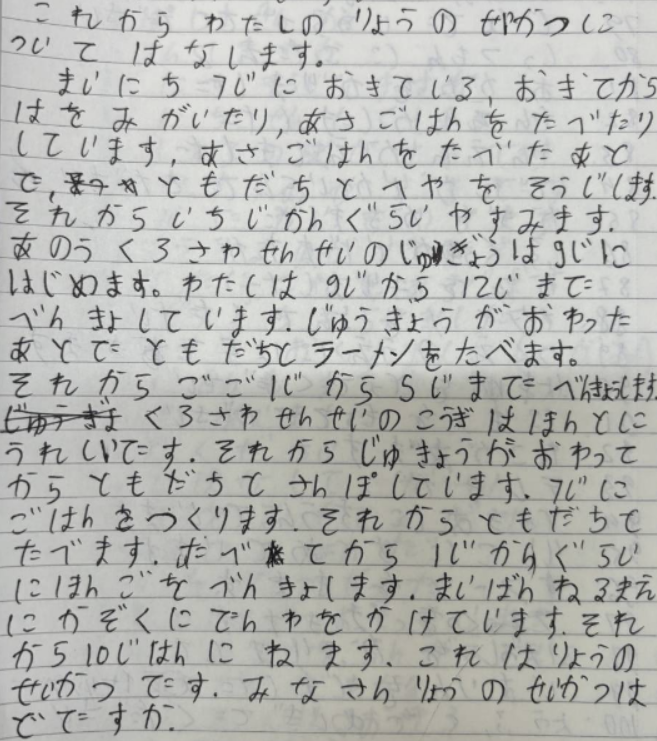 これから わたしの りょうの せいかつに
ついて はなします。
まいにち 7じに おきている, おきてから
はを みがいたり, あさごはんを たべたり
しています, あさごはんを たべた あと
で, ともだちと へやを そうじします.
それから いちじかんぐらい やすみます.
あのう くろさわ せんせいの じゅぎょうは 9じに
はじめます。わたしは 9じから 12じまで
べんきょしています. じゅうきょうが おわった
あとで ともだちと ラーメンを たべます。
それから ごご 1じから 5じまで べんきょうします
くろさわ せんせいの こうぎは ほんとに
うれしいです. それから じゅきょうが おわって
から ともだちと さんぽしています. 7じに
ごはんを つくります. それから ともだちて
たべます. たべてから 1じからぐらい
にほんごを べんきょします. まいばん ねるまえ
に かぞくに でんわを かけています. それ
から 10じはんに ねます. これは りょうの
せいかつです. みなさん りょうの せいかつは
どですか.